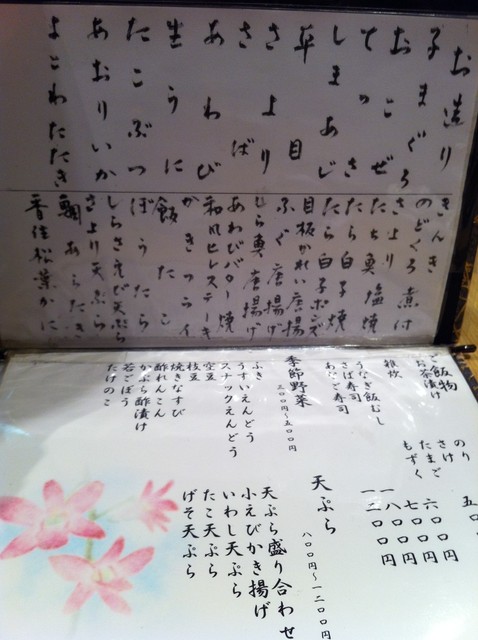 お造り
子まぐろ
おこぜ
てっさ
しまあじ
平目
さより
さば
あわび
生うに
たこぶつ
あおりいか
よこわたたき
きんき
のどぐろ 煮付
さより
たち魚塩焼
たら白子焼
たら白子ポンズ
目板かれい唐揚
ふぐ唐揚げ
しら魚唐揚げ
あわびバター焼
和風ヒレステーキ
かきフライ
飯たこ
ぼうたら
しらさえび天ぷら
さより天ぷら
鯛あらたき
香住松葉かに
ご飯物
お茶漬け
のり
さけ
たまご
もずく
雑炊
うなぎ飯むし
さば寿司
あなご寿司
五
六〇〇円
七〇〇円
一八〇〇円
一二〇〇円
季節野菜
三〇〇円〜五〇〇円
ふき
うすいえんどう
スナックえんどう
空豆
枝豆
焼きなすび
酢れんこん
かぶら酢漬け
若ごぼう
たけのこ
天ぷら
八〇〇円〜一二〇〇円
天ぷら盛り合わせ
小えびかき揚げ
いわし天ぷら
たこ天ぷら
げそ天ぷら